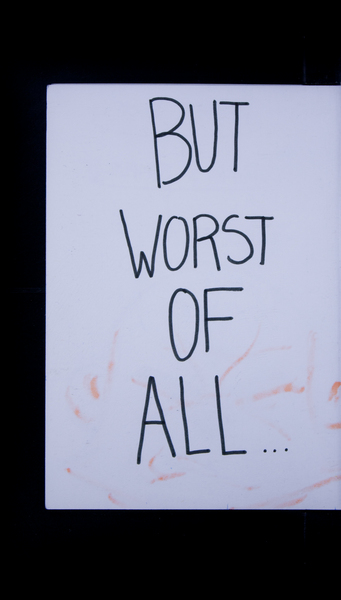 BUT
WORST
OF
ALL...